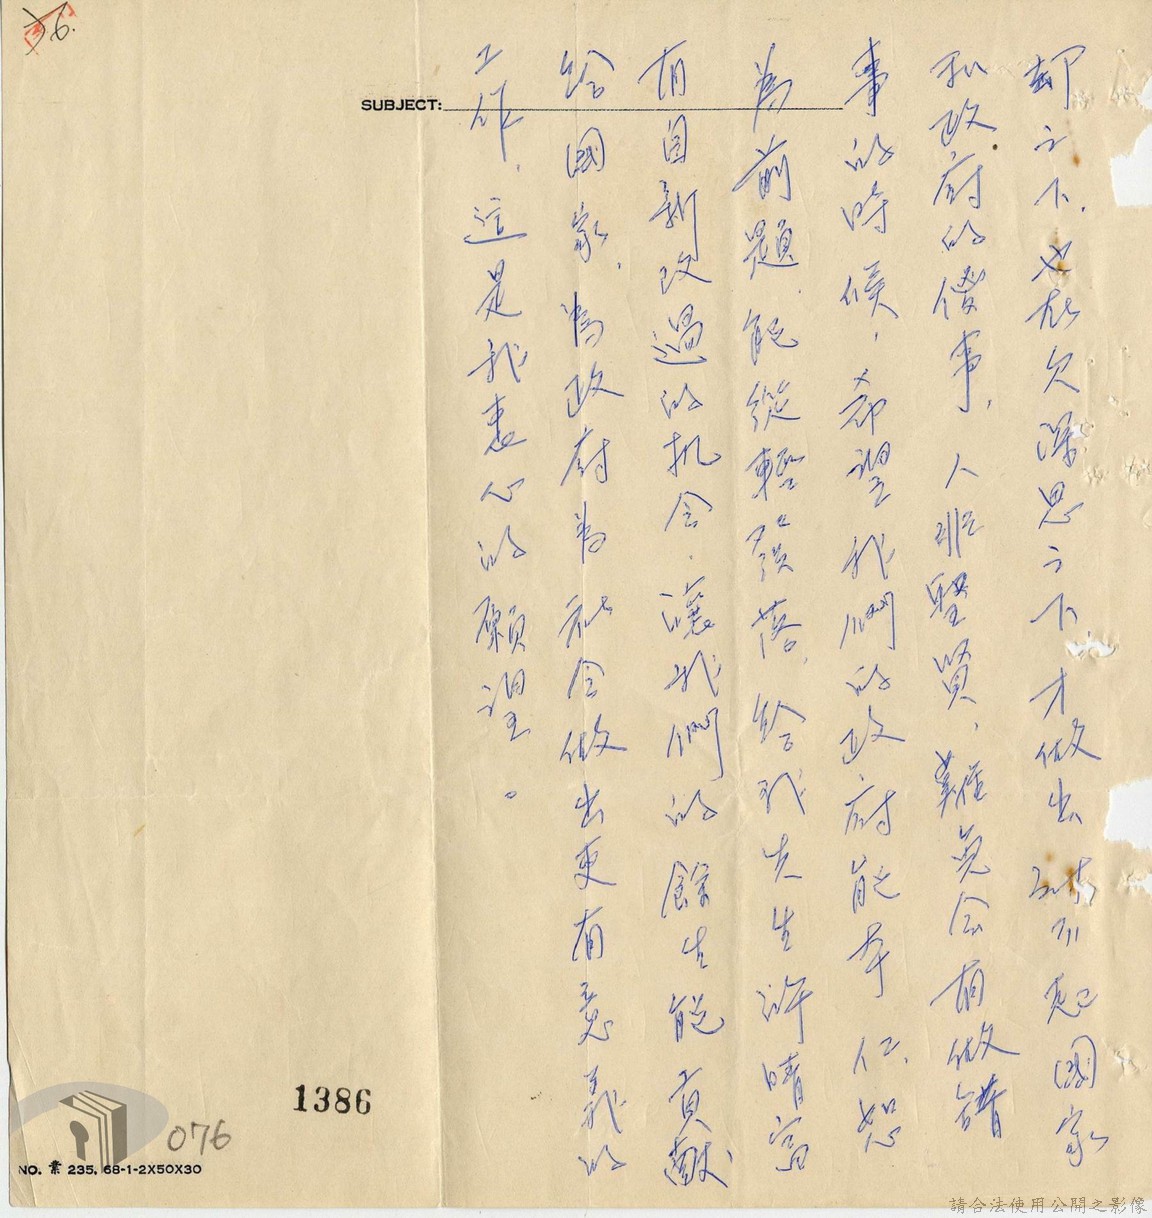 卻之下，也就欠深思之下才做出對不起國家
和政府的傻事，人非聖賢，難免會有做錯
事的時候，希望我們的政府能本仁，恕
為前題，能從輕發落，給我先生許晴富
有自新改過的机会，讓我們的餘生能貢獻
給國家，為政府為社会做出更有意義的
工作，這是我衷心的願望。
SUBJECT:
1386
076
NO. 業 235, 68-1-2X50X30
請合法使用公開之影像